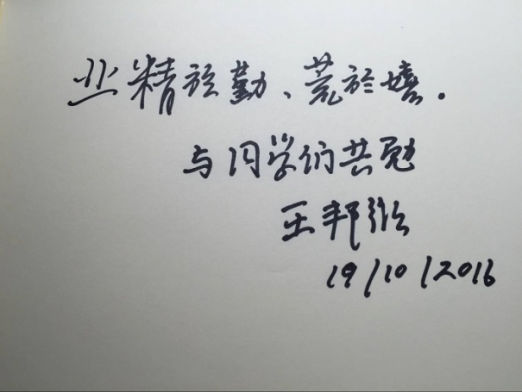 业精於勤、荒於嬉.
与同学们共勉
王邦维
19/10/2016